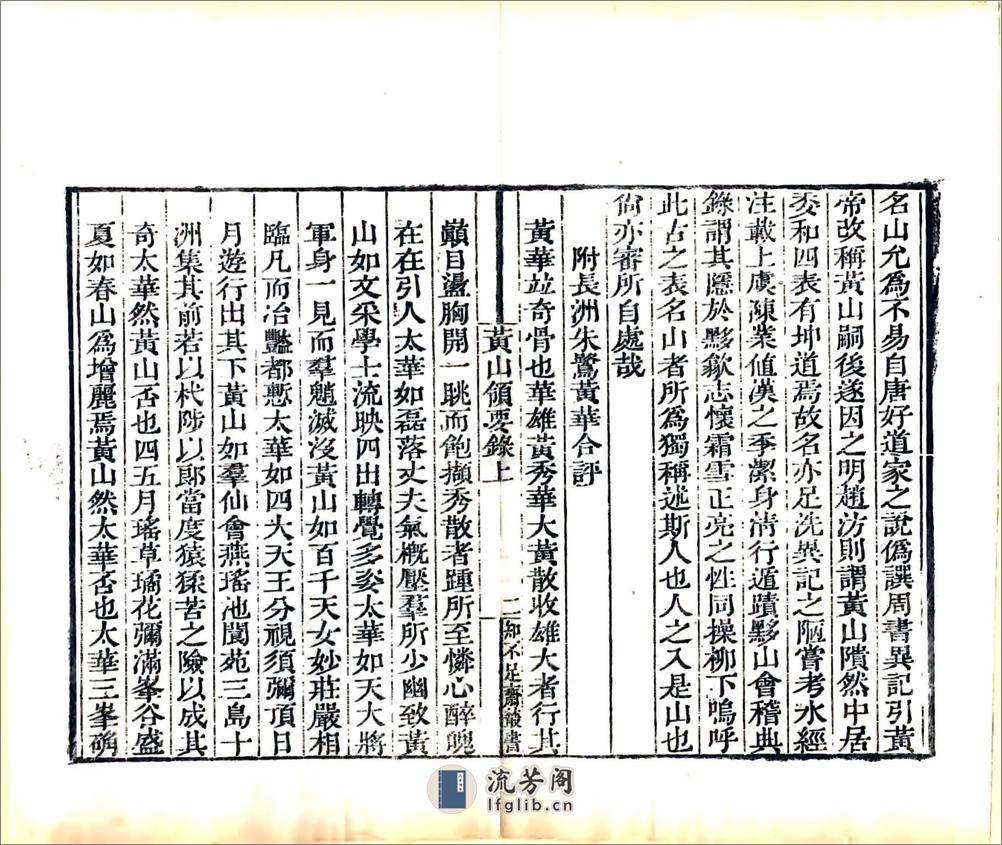 名山允爲不易自唐好道家之說僞譔周書異記引黃
帝故稱黃山嗣後遂因之明趙汸則謂黃山隤然中居
委和四表有坤道焉故名亦足洗異記之陋嘗考水經
注載上虞陳業値漢之季潔身淸行遁蹟黟山會稽典
錄謂其隱於黟歙志懷霜雪正亮之性同操柳下嗚呼
此古之表名山者所爲獨稱述斯人也人之入是山也
尙亦審所自處哉
附長洲朱鷺黃華合評
黃華竝奇骨也華雄黃秀華大黃散收雄大者行其
黃山領要錄上
二
知不足齋叢書
巔目盪胸開一眺而飽擷秀散者踵所至憐心醉魄
在在引人太華如磊落丈夫氣槪壓羣所少幽致黃
山如文采學士流映四出轉覺多姿太華如天大將
軍身一見而羣魈滅沒黃山如百千天女妙莊嚴相
臨凡而冶豔都慙太華如四大天王分視須彌頂日
月遊行出其下黃山如羣仙會燕瑤池閬苑三島十
洲集其前若以杙陟以郞當度猿猱苦之險以成其
奇太華然黃山否也四五月瑤草璚花彌滿峯谷盛
夏如春山爲增麗焉黃山然太華否也太華三峯确
流芳阁
lfglib.cn